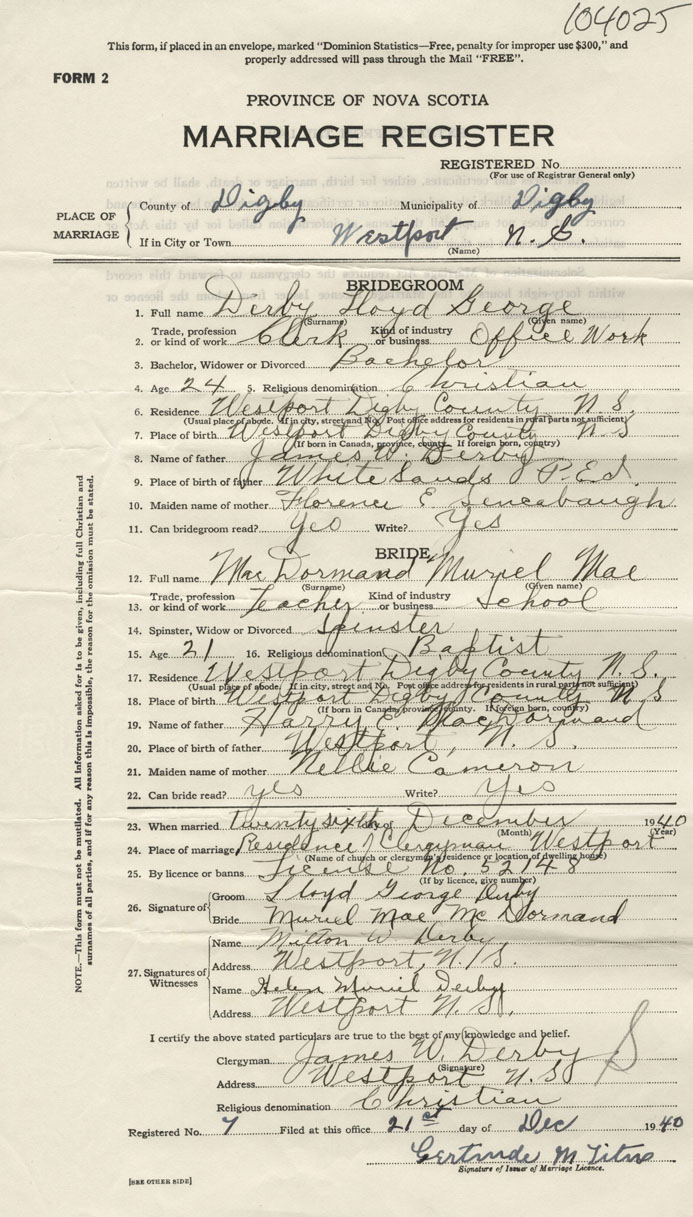 104025
This form, if placed in an envelope, marked "Dominion Statistics—Free, penalty for improper use $300," and
properly addressed will pass through the Mail "FREE".
FORM 2
PROVINCE OF NOVA SCOTIA
MARRIAGE REGISTER
REGISTERED No.
(For use of Registrar General only)
PLACE OF MARRIAGE
County of Digby Municipality of Digby
If in City or Town Westport N. S.
(Name)
BRIDEGROOM
1. Full name Derby Lloyd George
(Surname) (Given name)
2. Trade, profession or kind of work Clerk Kind of industry or business Office Work
3. Bachelor, Widower or Divorced Bachelor
4. Age 24 5. Religious denomination Christian
6. Residence Westport Digby County N. S.
(Usual place of abode. If in city, street and No. Post office address for residents in rural parts not sufficient)
7. Place of birth Westport Digby County N S
(If born in Canada, province, county. If foreign born, country)
8. Name of father James W. Derby
9. Place of birth of father White Sands P. E. d.
10. Maiden name of mother Florence E
11. Can bridegroom read? Yes Write? Yes
BRIDE
12. Full name MacDormand Muriel Mae
(Surname) (Given name)
13. Trade, profession or kind of work Teacher Kind of industry or business School
14. Spinster, Widow or Divorced Spinster
15. Age 21 16. Religious denomination Baptist
17. Residence Westport Digby County N. S.
(Usual place of abode. If in city, street and No. Post office address for residents in rural parts not sufficient)
18. Place of birth Westport Digby County N S
(If born in Canada, province, county. If foreign born, country)
19. Name of father Harry E. MacDormand
20. Place of birth of father Westport, N. S.
21. Maiden name of mother Nellie Cameron
22. Can bride read? yes Write? Yes
23. When married twenty sixth day of December 1940
(Month) (Year)
24. Place of marriage Residence of Clergyman Westport
(Name of church or clergyman's residence or location of dwelling house)
25. By licence or banns License No. 52148
(If by licence, give number)
26. Signature of
Groom Lloyd George Derby
Bride Muriel Mae McDormand
27. Signatures of Witnesses
Name Milton W Derby
Address Westport, N. S.
Name Helen Muriel Derby
Address Westport N. S.
I certify the above stated particulars are true to the best of my knowledge and belief.
Clergyman James W. Derby
(Signature)
Address Westport N. S.
Religious denomination Christian
Registered No. 7 Filed at this office 21st day of Dec 1940
Gertrude M Titus
Signature of Issuer of Marriage Licence.
[SEE OTHER SIDE]
NOTE.—This form must not be mutilated. All information asked for is to be given, including full Christian and
surnames of all parties, and if for any reason this is impossible, the reason for the omission must be stated.